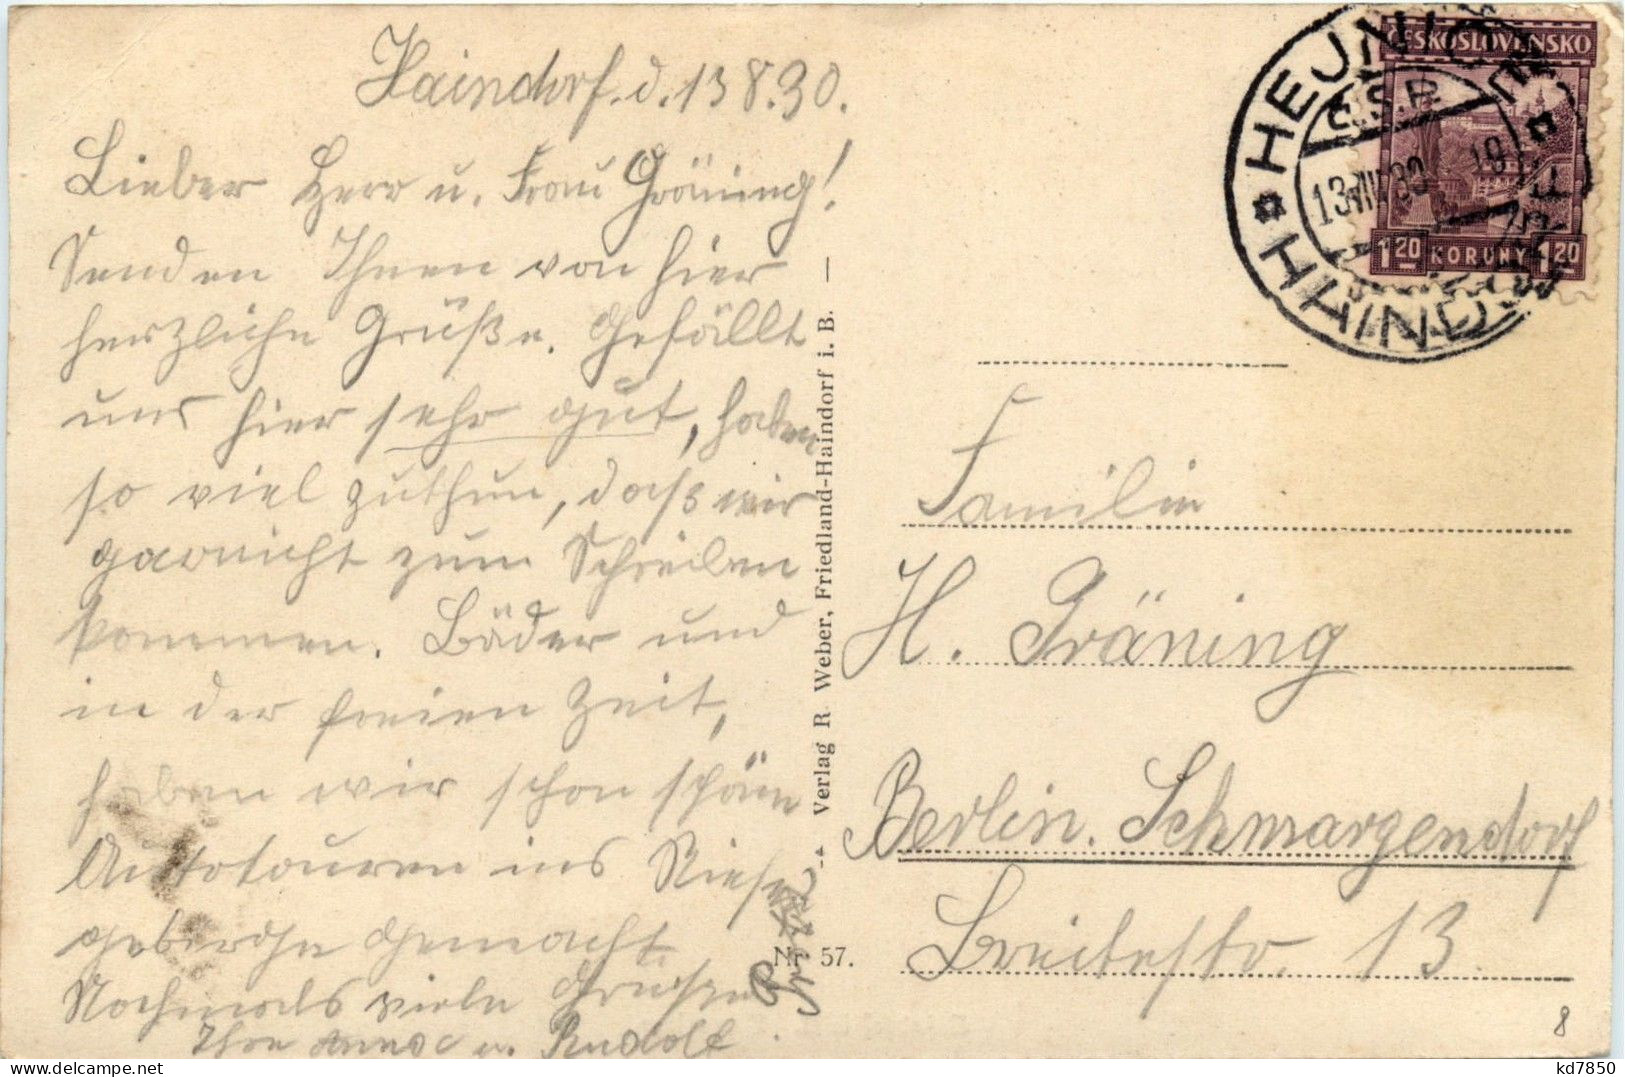 Haindorf. d. 13 8. 30.
Lieber Herr u. Frau Gräning!
Senden Ihnen von hier
herzliche Grüße. Gefällt
uns hier sehr gut, haben
so viel zuthun, daß wir
garnicht zum Schreiben
kommen. Bäder und
in der freien Zeit,
haben wir schon schöne
Autotouren ins Riesen
gebirge gemacht
Nochmals viele Grüsse
Ihre u. Rudolf
Verlag R. Weber, Friedland-Haindorf i. B.
Nr. 57.
HEJNICE
HAINDORF
Č.S.R.
13.VIII.30 19
ČESKOSLOVENSKO
1.20 KORUNY 1.20
Familie
H. Gräning
Berlin. Schmargendorf
Breitestr. 13.
8
kd7850